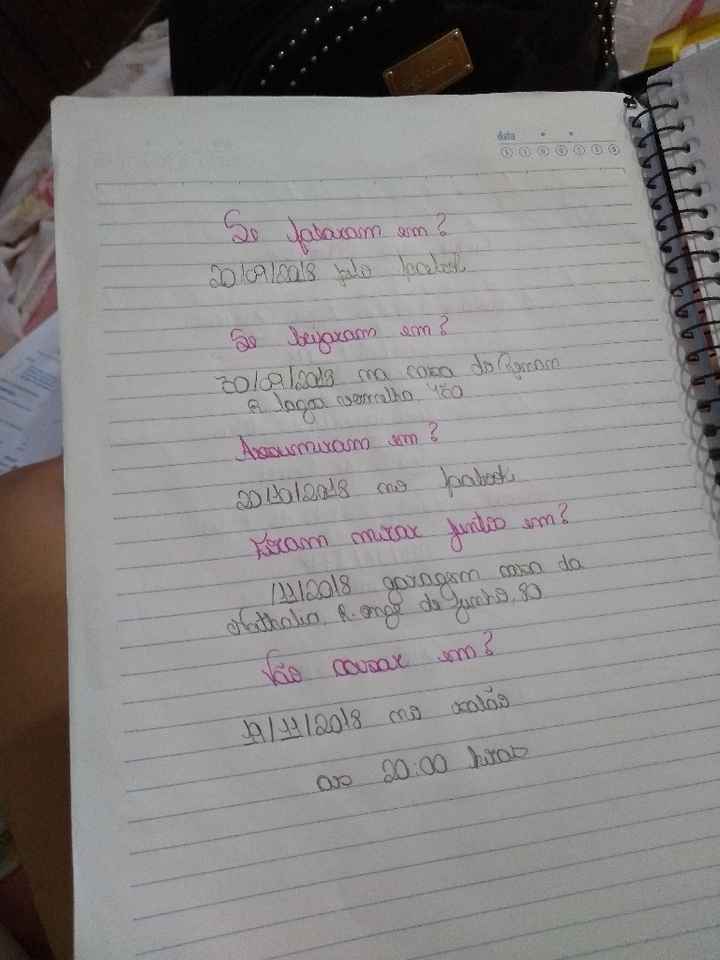 data
Se falaram em?
20/09/2018 pelo facebook
Se beijaram em?
30/09/2018 na casa do
R lagoa vermelha 420
Assumiram em?
20/10/2018 no facebook
Foram morar juntos em?
/11/2018 garagem casa da
Nathalia, R. onze de Junho, 80
Vão casar em?
19/11/2018 no salão
as 20:00 horas